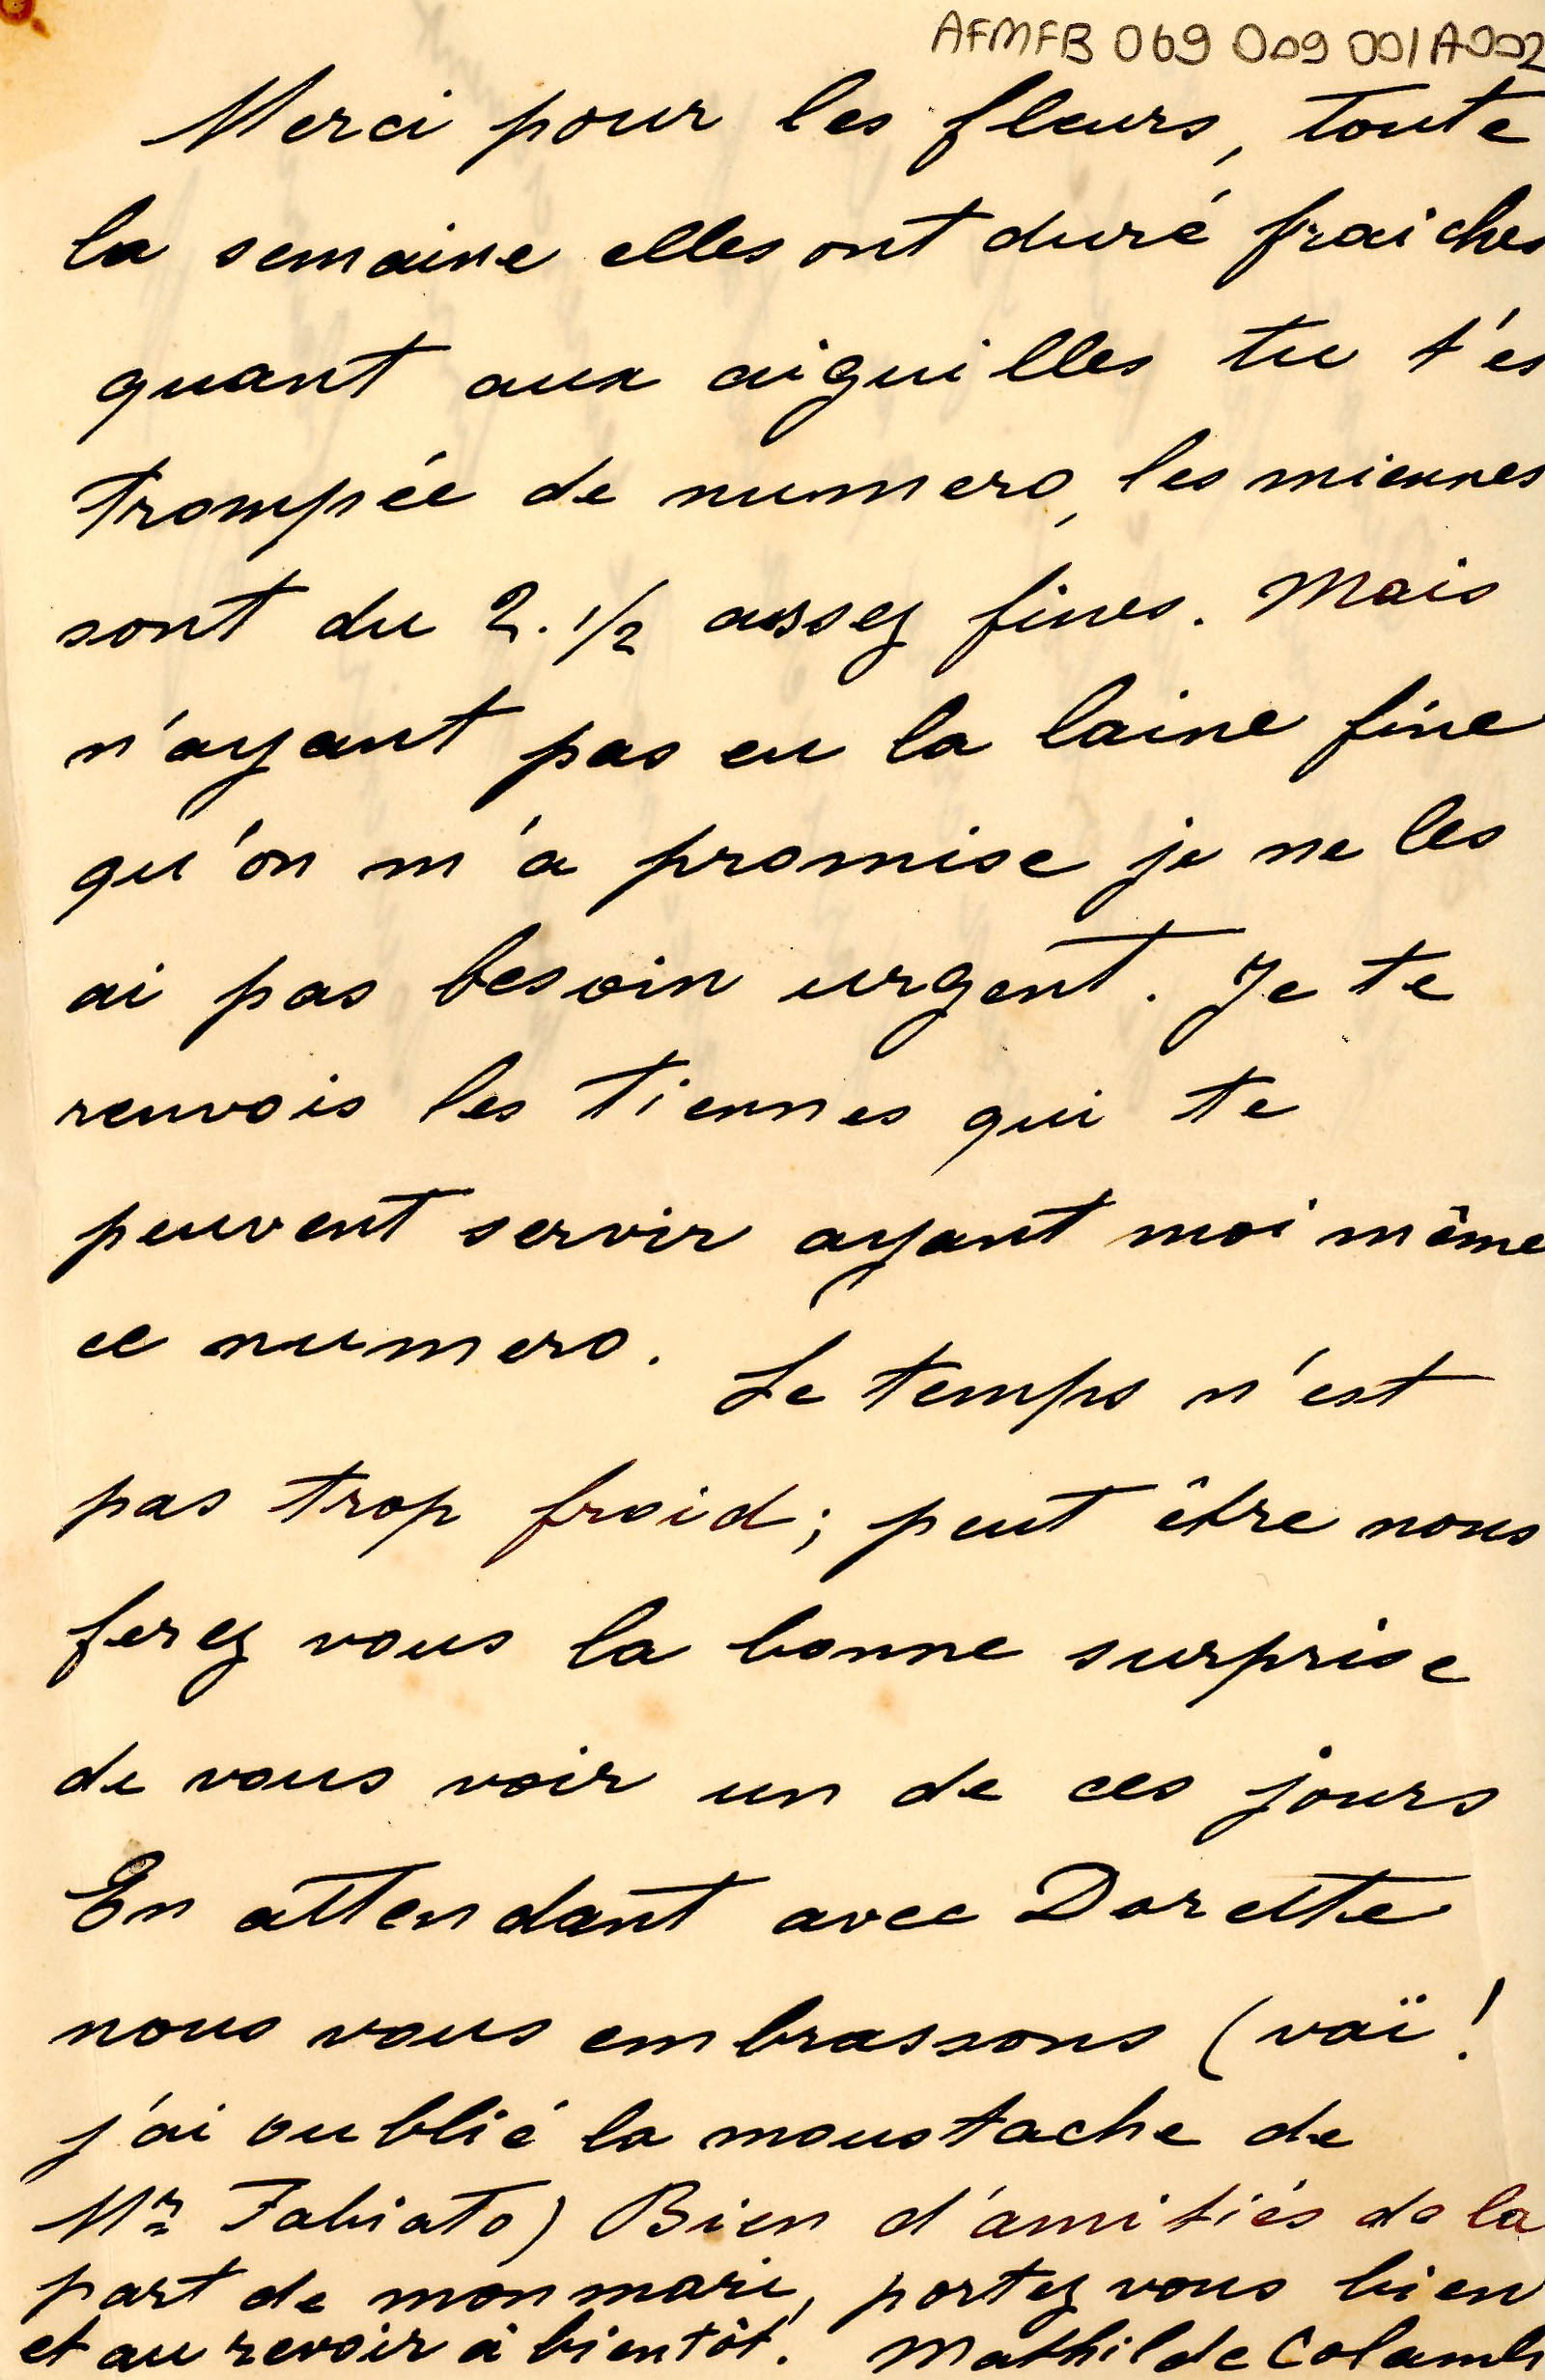 AFMFB 069 009 001A002
Merci pour les fleurs, toute
la semaine elles ont duré fraiches
quant aux aiguilles tu t'es
trompée de numero, les miennes
sont du 2.1/2 assez fines. Mais
n'ayant pas eu la laine fine
qu'on m'a promise je ne les
ai pas besoin urgent. Je te
renvois les tiennes qui te
peuvent servir ayant moi même
ce numero. Le temps n'est
pas trop froid; peut être nous
ferez vous la bonne surprise
de vous voir un de ces jours
En attendant avec Dorette
nous vous embrassons (vaï!
j'ai oublié la moustache de
Mr Fabiato) Bien d'amitiés de la
part de mon mari, portez vous bien
et au revoir à bientôt. Mathilde